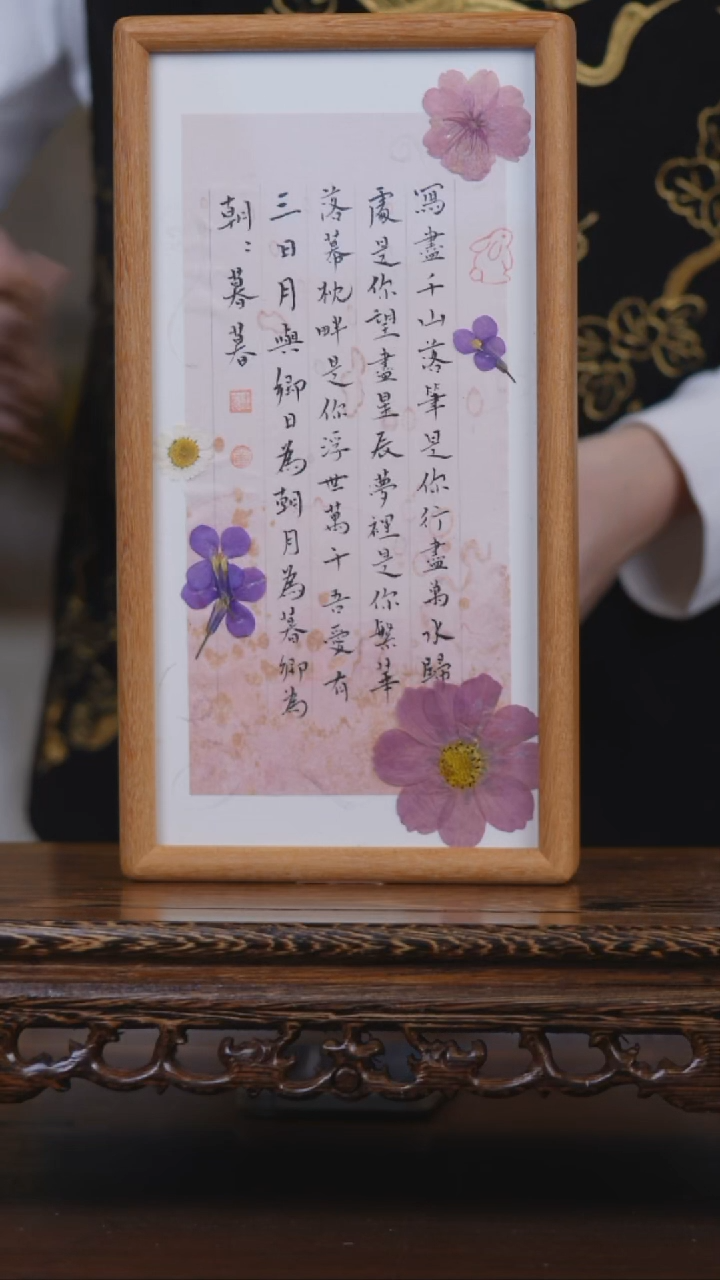 寫盡千山落筆是你行盡萬水歸
處是你望盡星辰夢裡是你繁華
落幕枕畔是你浮世萬千吾愛有
三日月與卿日為朝月為暮卿為
朝:暮暮